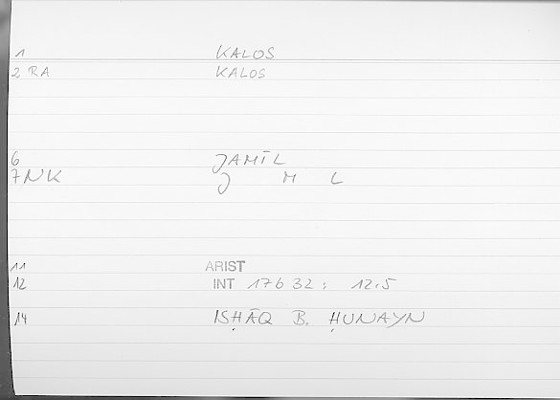 1 KALOS
2 RA KALOS
6 JAMĪL
7 NK J M L
11 ARIST
12 INT 17b 32 ; 12,5
14 ISḤĀQ B. ḤUNAYN